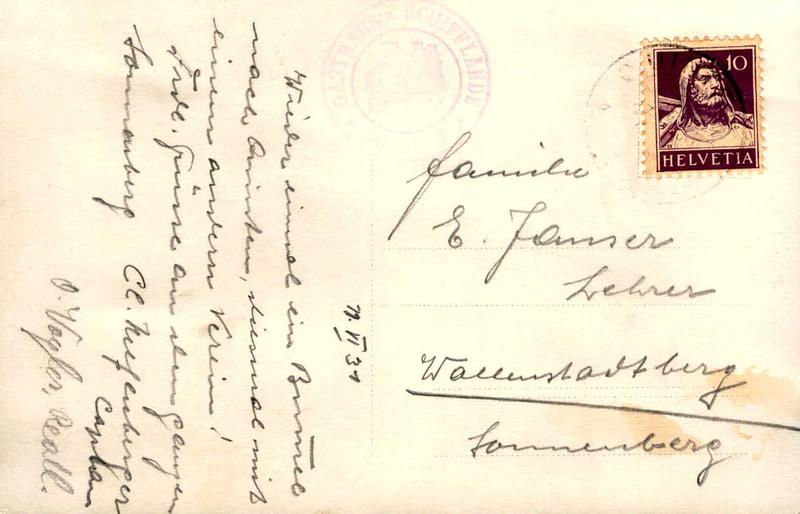 GASTHAUS SCHIFFLÄNDE
10
HELVETIA
Familie
E. Janser
Lehrer
Wallenstadtberg
Sonnenberg
VI 31
Wieder einmal ein Bummel
nach, diesmal mit
einem andern Verein!
Frdl. Grüsse an den ganzen
Sonnenberg Cl. Helfenberger
Caplan
J. Vogler, Reall.